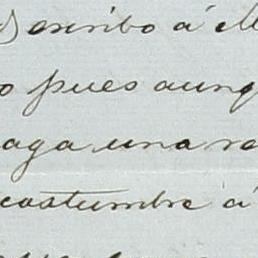 escribo á M
o pues aunq
aga una re
costumbre á